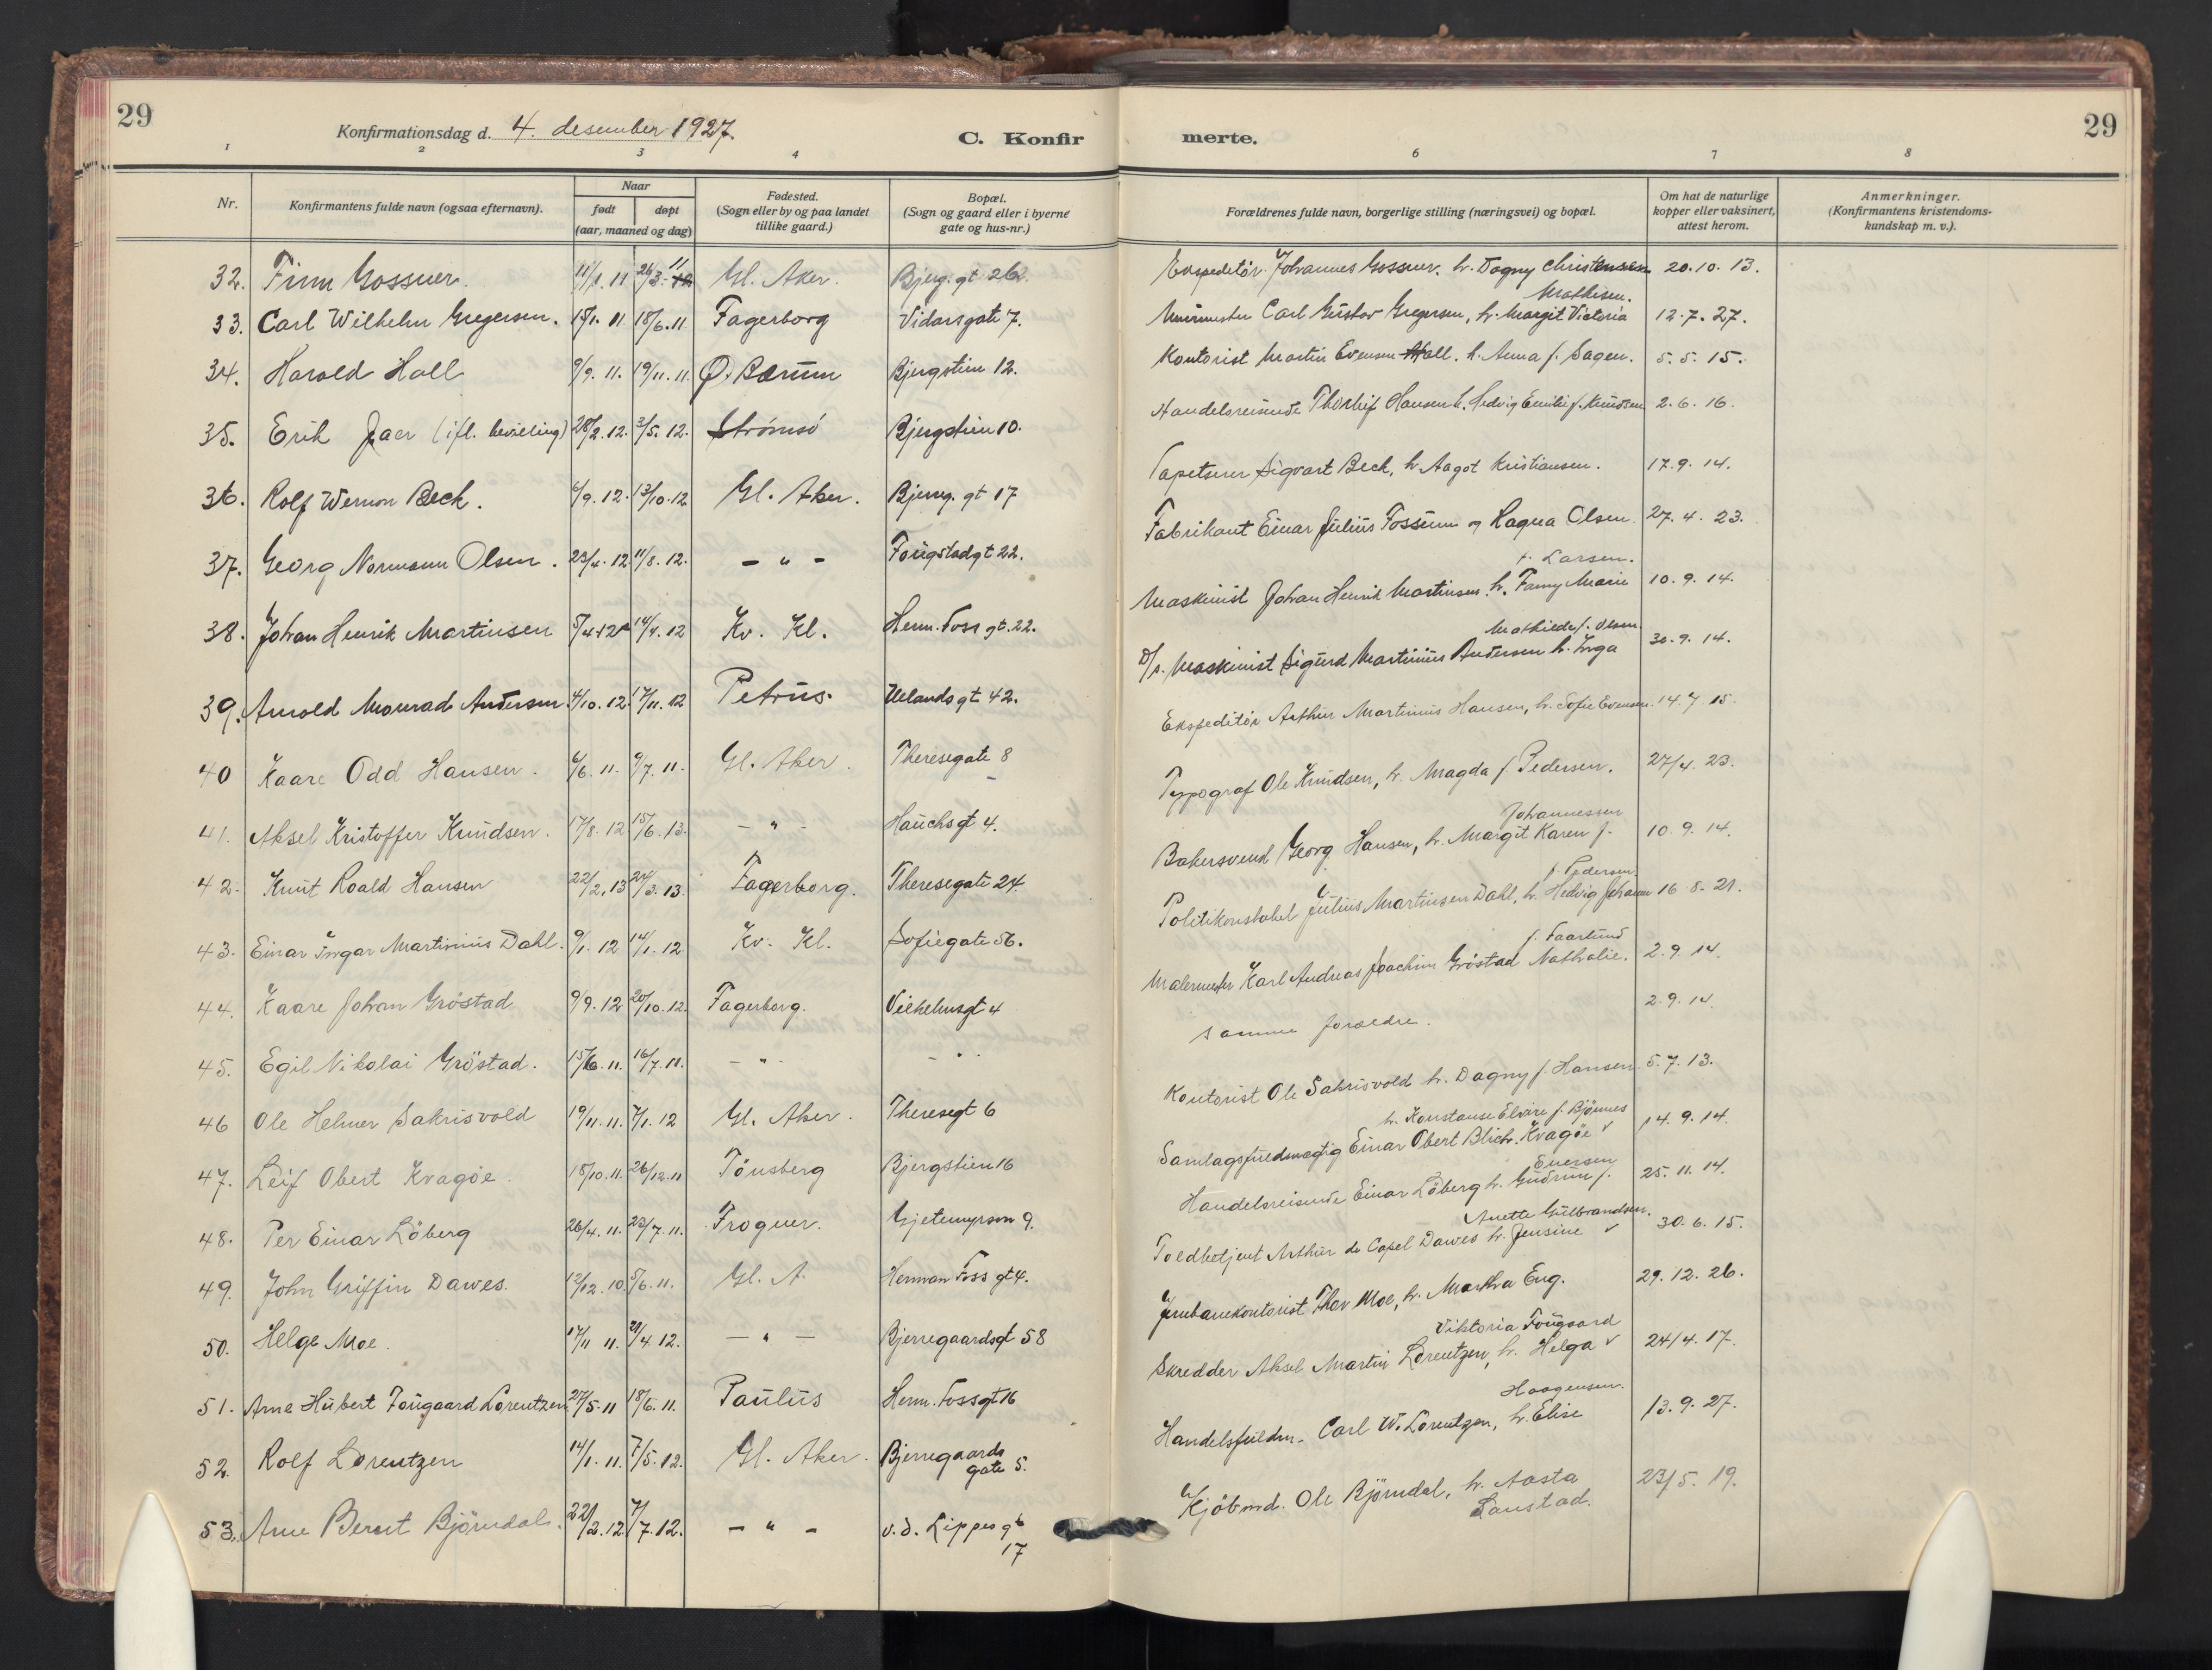 29
Konfirmationsdag d. 4. desember 1927.
C. Konfir
merte.
29
1 2 3 4 6 7 8
Nr.
Konfirmantens fulde navn (ogsaa efternavn).
Naar
født døpt
(aar, maaned og dag)
Fødested.
(Sogn eller by og paa landet
tillike gaard.)
Bopæl.
(Sogn og gaard eller i byerne
gate og hus-nr.)
Forældrenes fulde navn, borgerlige stilling (næringsvei) og bopæl.
Om hat de naturlige
kopper eller vaksinert,
attest herom.
Anmerkninger.
(Konfirmantens kristendoms-
kundskap m. v.).
32. Finn Gossner. 11/1. 11 26/3. 11 Gl. Aker. Bjerg. gt 26.
33. Carl Wilhelm Gregersen. 15/1. 11 18/6. 11. Fagerborg Vidarsgate 7.
34. Harald Hall 9/9. 11. 19/11. 11. Ø. Bærum Bjergstien 12.
35. Erik Jaer (ifl. bevilling) 28/2. 12. 3/5. 12. Strömsö Bjergstien 10.
36. Rolf Werner Beck. 6/9. 12. 13/10. 12 Gl. Aker. Bjerreg. gt 17
37. Georg Normann Olsen. 23/4. 12 11/8. 12. - " - Fougstadgt 22.
38. Johan Henrik Martinsen 5/4 12 14/4. 12 Kv. Kl. Herm. Foss gt. 22.
39. Arnold Monrad Andersen. 4/10. 12 17/11. 12 Petrus. Uelandsgt 42.
40 Kaare Odd Hansen. 6/6. 11. 9/7. 11. Gl. Aker. Theresegate 8
41. Aksel Kristoffer Knudsen. 17/8. 12 15/6. 13. - " - Hauchsgt 4.
42. Knut Roald Hansen 22/2. 13 24/3. 13. Fagerborg. Theresegate 24.
43. Einar Ingar Martinius Dahl. 9/1. 12 14/1. 12 Kv. Kl. Sofiegate 56.
44. Kaare Johan Gröstad 9/9. 12 20/10. 12. Fagerborg. Vilhelmsgt 4
45. Egil Nikolai Gröstad. 15/6. 11. 16/7. 11. - " - - " -
46 Ole Helmer Sakrisvold 19/11. 11. 7/1. 12 Gl. Aker. Theresegt 6
47. Leif Obert Kvagöe. 18/10. 11. 26/12. 11 Tönsberg Bjergstien 16
48. Per Einar Löberg 26/4. 11. 23/7. 11. Frogner. Gjetemyrsvn 9.
49. John Griffin Dawes. 12/12. 10. 5/6. 11. Gl. A. Herman Foss gt 4.
50. Helge Moe. 17/11 11. 21/4. 12. - " - Bjerregaardsgt 58
51. Arne Hubert Fougaard Lorentzen 27/5. 11 18/6. 11. Paulus Herm. Foss gt 16
52. Rolf Lorentzen 14/1. 11. 7/5. 12. Gl. Aker. Bjerregaards
gate 5.
53. Arne Bernt Björndal. 22/2. 12 7/7. 12. - " - v. d. Lippes gt
17
Ekspeditör Johannes Gossner. h. Dagny Christensen 20. 10. 13.
Mathisen.
Murmester Carl Gustav Gregersen, h. Margit Victoria 12. 7. 27.
Kontorist Martin Evensen Hall. h. Anna f. Sagen. 5. 5. 15.
Handelsreisende Thorleif Hansen h. Hedvig Emilie f. Knudsen 2. 6. 16.
Tapetserer Sigvart Beck, h. Aagot Kristiansen. 17. 9. 14.
Fabrikant Einar Julius Fossum og Ragna Olsen. 27. 4. 23.
f. Larsen.
Maskinist Johan Henrik Martinsen h. Fanny Marie 10. 9. 14.
Mathilde f. Olsen
D/s. Maskinist Sigurd Martinius Andersen h. Inga 30. 9. 14.
Ekspeditör Arthur Martinius Hansen, h. Sofie Evensen. 14. 7 15.
Typograf Ole Knudsen, h. Magda f. Pedersen. 27/4. 23.
Johannessen
Bakersvend Georg Hansen, h. Margit Karen f. 10. 9. 14.
f. Pedersen
Politikonstabel Julius Martinsen Dahl, h. Hedvig Johanne 16. 8. 21.
f. Faarlund
Malermester Karl Andreas Joachim Gröstad Nathalie. 2. 9. 14.
samme forældre. 2. 9. 14.
Kontorist Ole Sakrisvold h. Dagny f. Hansen. 5. 7. 13.
h. Konstanse Elvire f. Björnnes
Samlagsfuldmægtig Einar Obert Blich. Kvagöe v 14. 9. 14.
Enersen
Handelsreisende Einar Löberg h. Gudrun f. 25. 11. 14.
Anette Gulbrandsen.
Toldbetjent Arthur de Capel Dawes h. Jensine v 30. 6. 15.
Jernbanekontorist Thor Moe, h. Martha Eng. 29. 12. 26.
Viktoria Fougaard
Skredder Aksel Martin Lorentzen, h. Helga v 24/4. 17.
Haagensen.
Handelsfuldm. Carl W. Lorentzen, h. Elise 13. 9. 27.
Kjöbmd. Ole Björndal, h. Aasta 23/5. 19.
Lanstad.